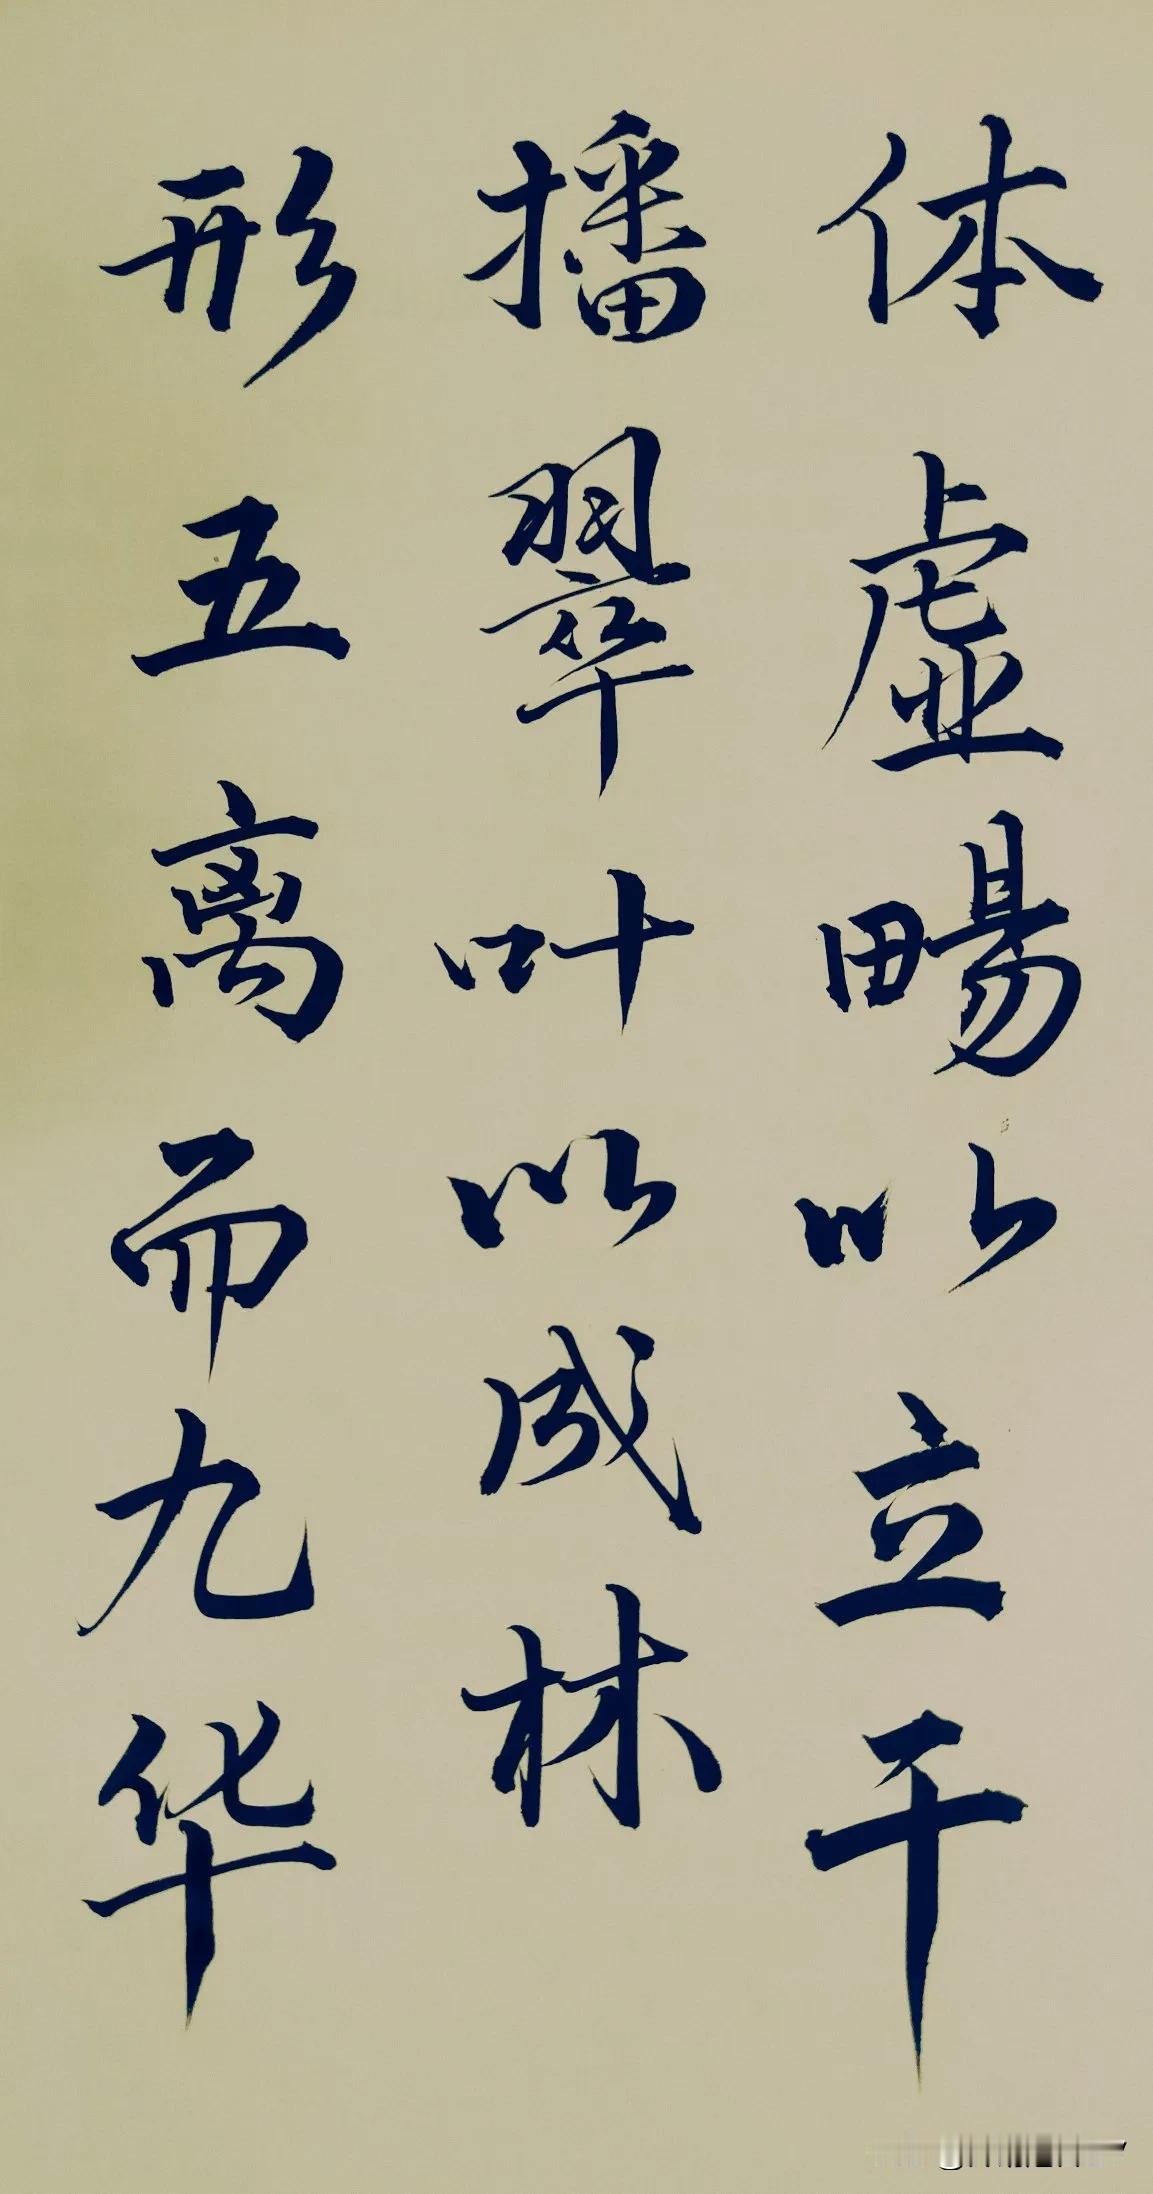 体虚畅以立干
播翠叶以成林
形五离而九华